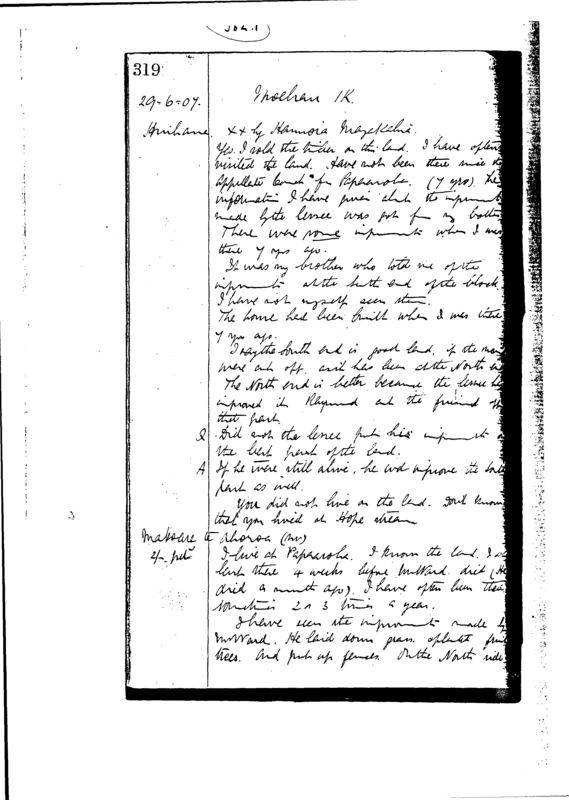 319
29-6-07.
Moehau 1K.
xx by Hamiora Mangakahia.
Yes. I sold the timber on the land. I have often
visited the land. Have not been there since the
Appellate Court for Papaaroha. (7 yrs) The
information I have given abt the improvements
made by the lessee was got from my brother
There were some improvements when I was
there 7 yrs ago.
It was my brother who told me of the
improvements at the south end of the block.
I have not myself seen them.
The house had been built when I was there
7 yrs ago.
I say the South end is good land, if the
were cut off. as it has been at the North
The North end is better because the lessee has
improved it. and the
that part.
Q Did not the lessee put his improvements on
the best part of the land.
A If he were still alive, he wod improve the
part as well.
You did not live on the land. Dont know
that you lived at Hope stream
Ahoroa (sw)
I live at Papaaroha. I know the land. I
there 4 weeks before Mr Ward died (He
died a month ago). I have often been there
sometimes 2 or 3 times a year.
I have seen the improvements made by
Mr Ward. He laid down grass, fruit
trees. And put up fences. On the North side